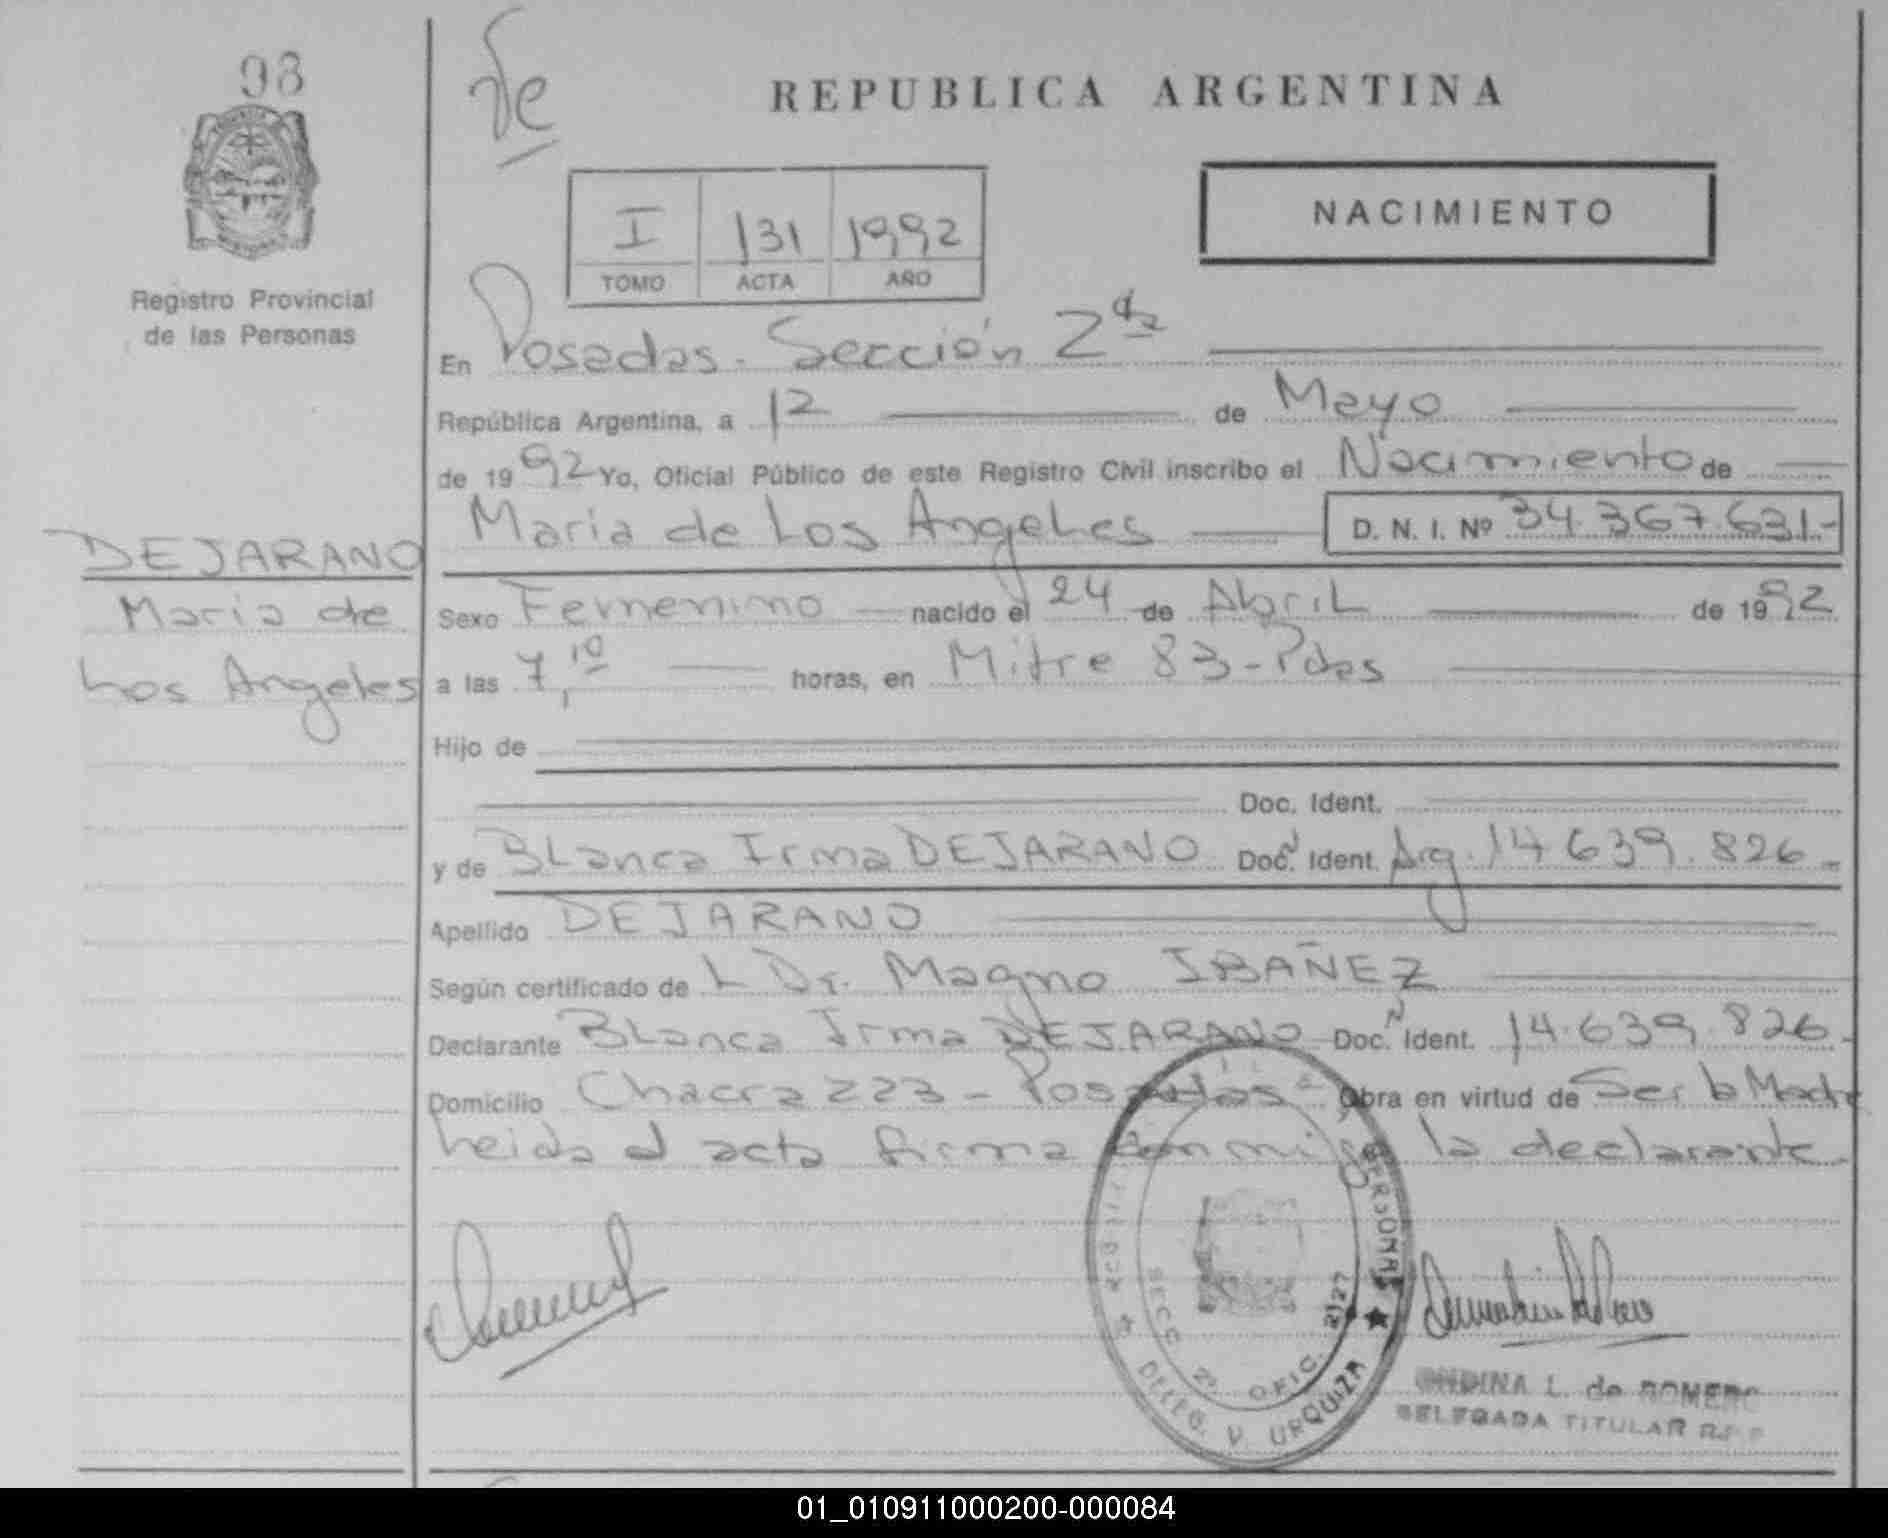 98
REPUBLICA ARGENTINA
I 131 1992
TOMO ACTA AÑO
NACIMIENTO
Registro Provincial
de las Personas
En Posadas - Sección 2da
República Argentina, a 12 de Mayo
de 1992 Yo, Oficial Público de este Registro Civil inscribo el Nacimiento de
Maria de Los Angeles D. N. I. Nº 34.367.631.-
DEJARANO
Maria de
Los Angeles
Sexo Femenino nacido el 24 de Abril de 1992
a las 7,10 horas, en Mitre 83 - Pdas
Hijo de
Doc. Ident.
y de Blanca Irma DEJARANO Doc. N Ident. Arg. 14.639.826.-
Apellido DEJARANO
Según certificado de L Dr. Magno IBAÑEZ
Declarante Blanca Irma DEJARANO Doc. N Ident. 14.639.826.-
Domicilio Chacra 223 - Posadas - Obra en virtud de Ser la Madre
Leida el acta firma conmigo la declarante.
PERSONAS
SECC. 2ª OFIC. 2127
DELEG. V. URQUIZA
ONDINA L. de ROMERO
DELEGADA TITULAR
01_010911000200-000084